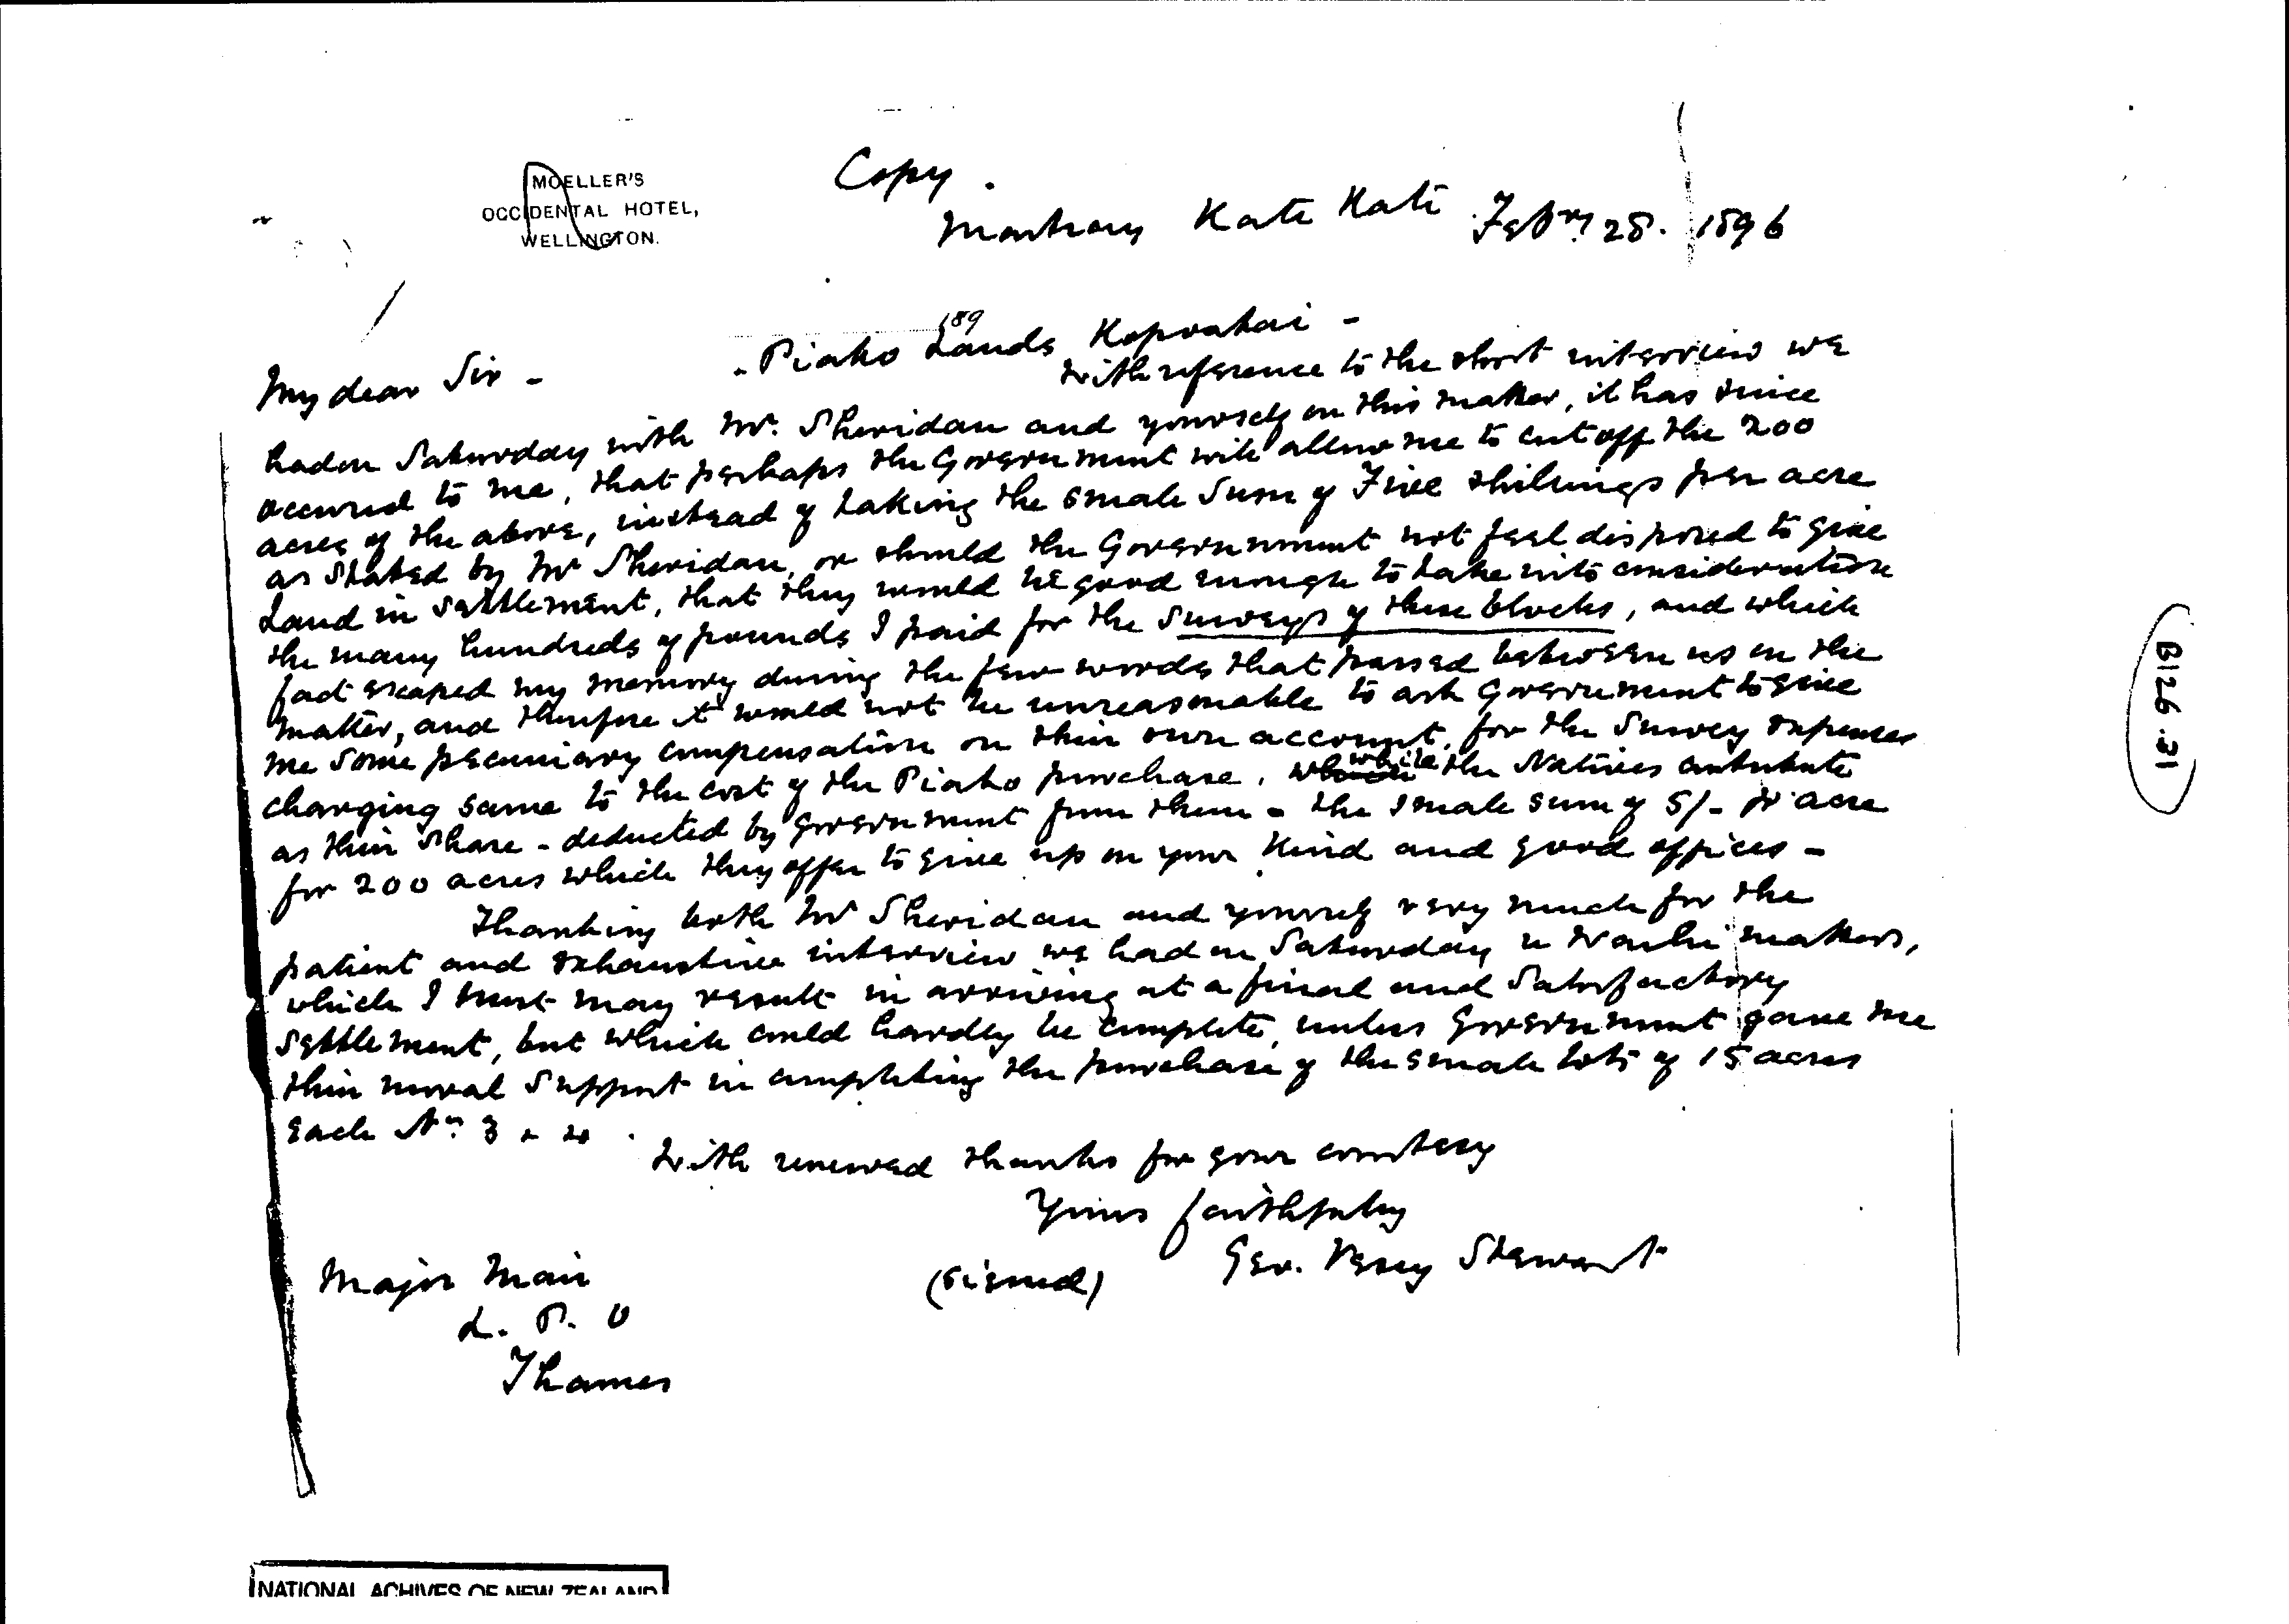 MOELLER'S
OCCIDENTAL HOTEL,
WELLINGTON.
Copy.
Kati Kati Febry 28. 1896
189
- Piako Lands Kopuatai -
My dear Sir -
With reference to the short interview we
had on Saturday with Mr. Sheridan and yourself on this matter, it has since
occurred to me, that perhaps the Government will allow me to cut off the 200
acres of the above, instead of taking the small sum of Five shillings per acre
as stated by Mr Sheridan, or should the Government not feel disposed to give
Land in settlement, that they would be good enough to take into consideration
the many hundreds of pounds I paid for the Surveys of these blocks, and which
fact escaped my memory during the few words that passed between us on the
matter, and therefore it would not be unreasonable to ask Government to give
me some pecuniary compensation on their own account, for the Survey expenses
charging same to the cost of the Piako purchase, while the Natives contribute
as their share - deducted by Government from them - the small sum of 5/- pr acre
for 200 acres which they offer to give up on your kind and good offices -
Thanking both Mr Sheridan and yourself very much for the
patient and exhaustive interview we had on Saturday re Waihi matters,
which I trust may result in arriving at a final and Satisfactory
settlement, but which could hardly be complete, unless Government gave me
their moral support in completing the purchase of the small lots of 15 acres
each No. 3 & 4.
With renewed thanks for your courtesy
Yours faithfully
(signed) Geo. Vesey Stewart
Major Mair
L. P. O
Thames
B126.31
NATIONAL ACHIVES OF NEW ZEALAND